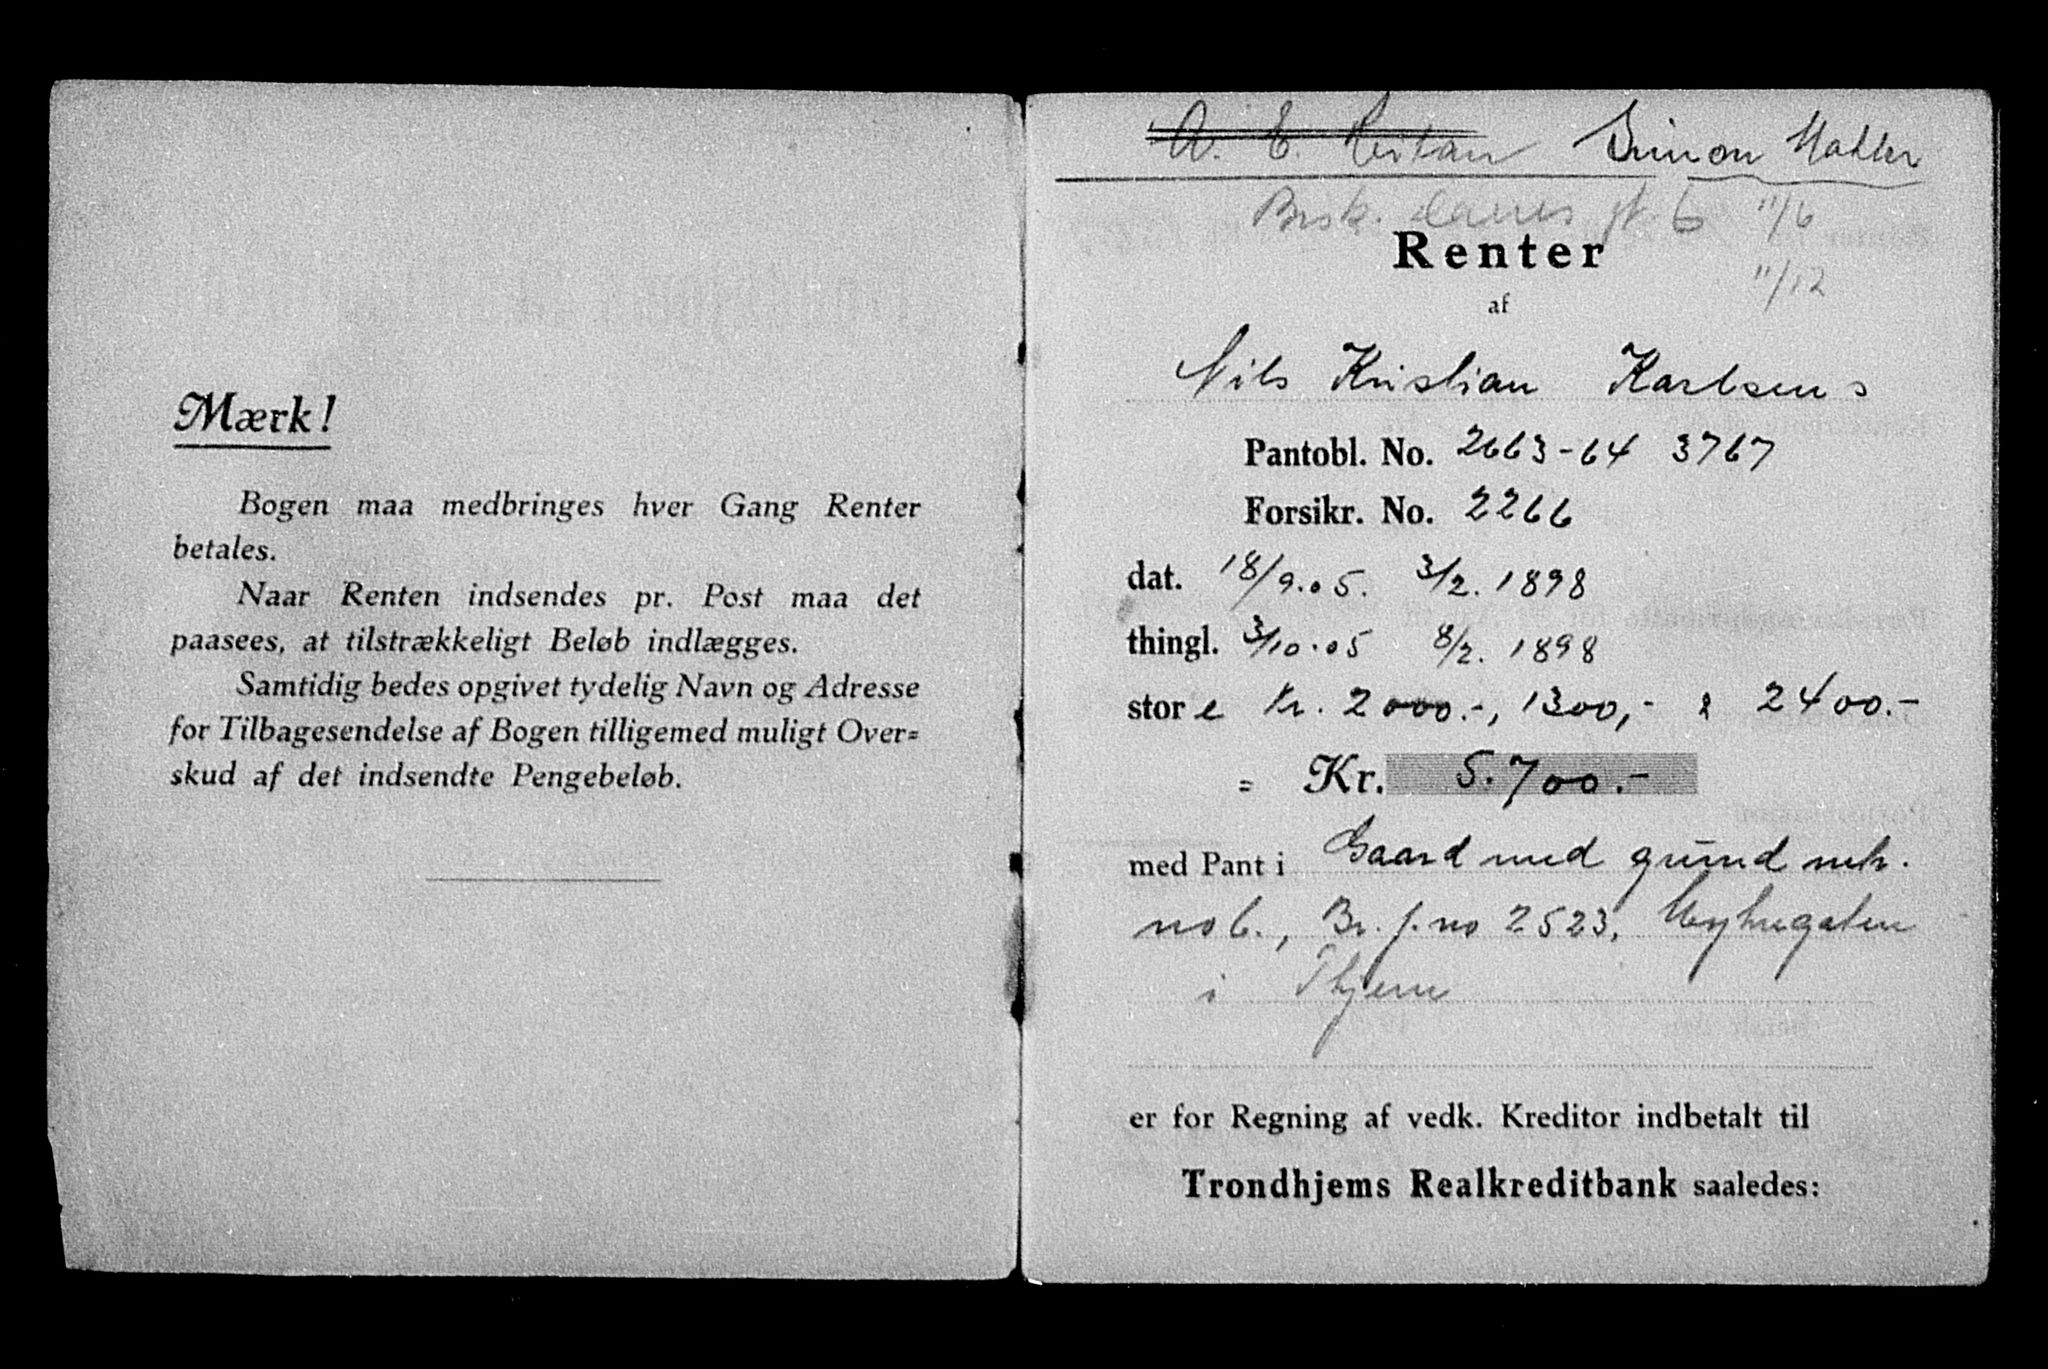 Mærk!
Bogen maa medbringes hver Gang Renter
betales.
Naar Renten indsendes pr. Post maa det
paasees, at tilstrækkeligt Beløb indlægges.
Samtidig bedes opgivet tydelig Navn og Adresse
for Tilbagesendelse af Bogen tilligemed muligt Over=
skud af det indsendte Pengebeløb.
A. E. Reitan Simon Mahler
Bisk. Darres gt. 6 11/6
Renter 11/12
af
Nils Kristian Karlsens
Pantobl. No. 2663-64 3767
Forsikr. No. 2266
dat. 18/9.05. 3/2. 1898
thingl. 3/10.05 8/2. 1898
store Kr. 2000.-, 1300,- & 2400.-
= Kr. 5.700.-
med Pant i Gaard med grund mtr.
no 6., Br. f. no 2523,
i Thjem
er for Regning af vedk. Kreditor indbetalt til
Trondhjems Realkreditbank saaledes: